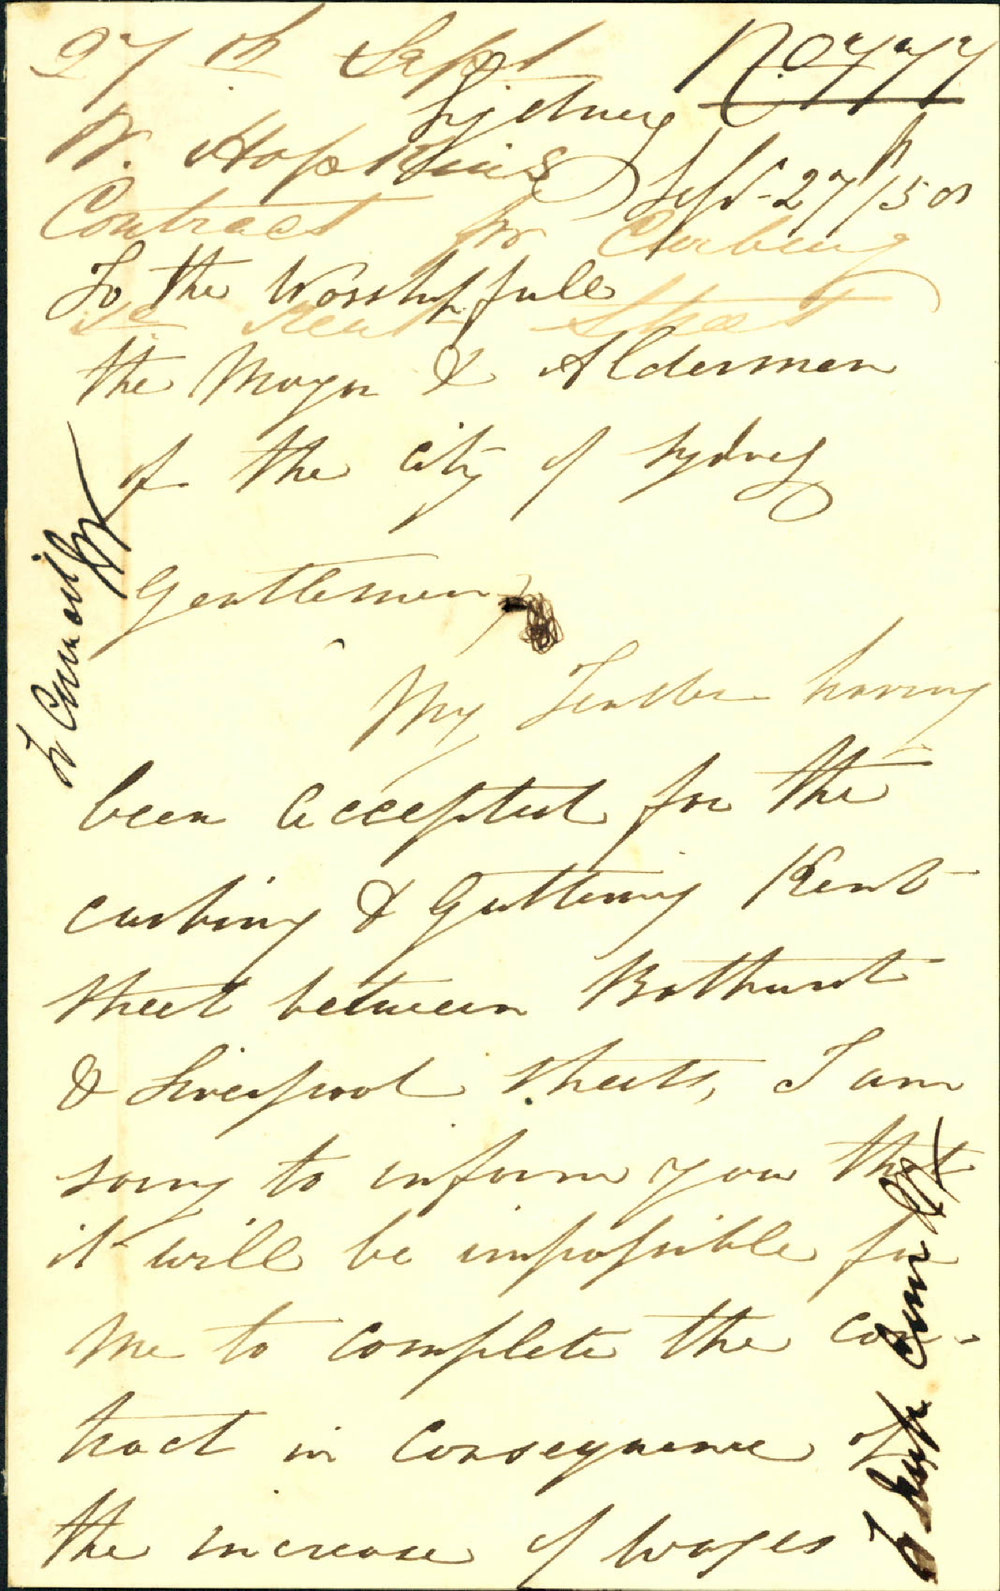 27th Sept
No 777
W. Hopkins
Sydney
Sept 27/50
Contract for Curbing
To the Worshipfull
Kent Street
the Mayor & Aldermen
of the City of Sydney
To Council
Gentlemen,
My Tender having
been accepted for the
curbing & Guttering Kent
Street between Bathurst
& Liverpool Streets, I am
sorry to inform you that
it will be impossible for
me to complete the con-
tract in consequence of
the increase of wages
To Imp Com